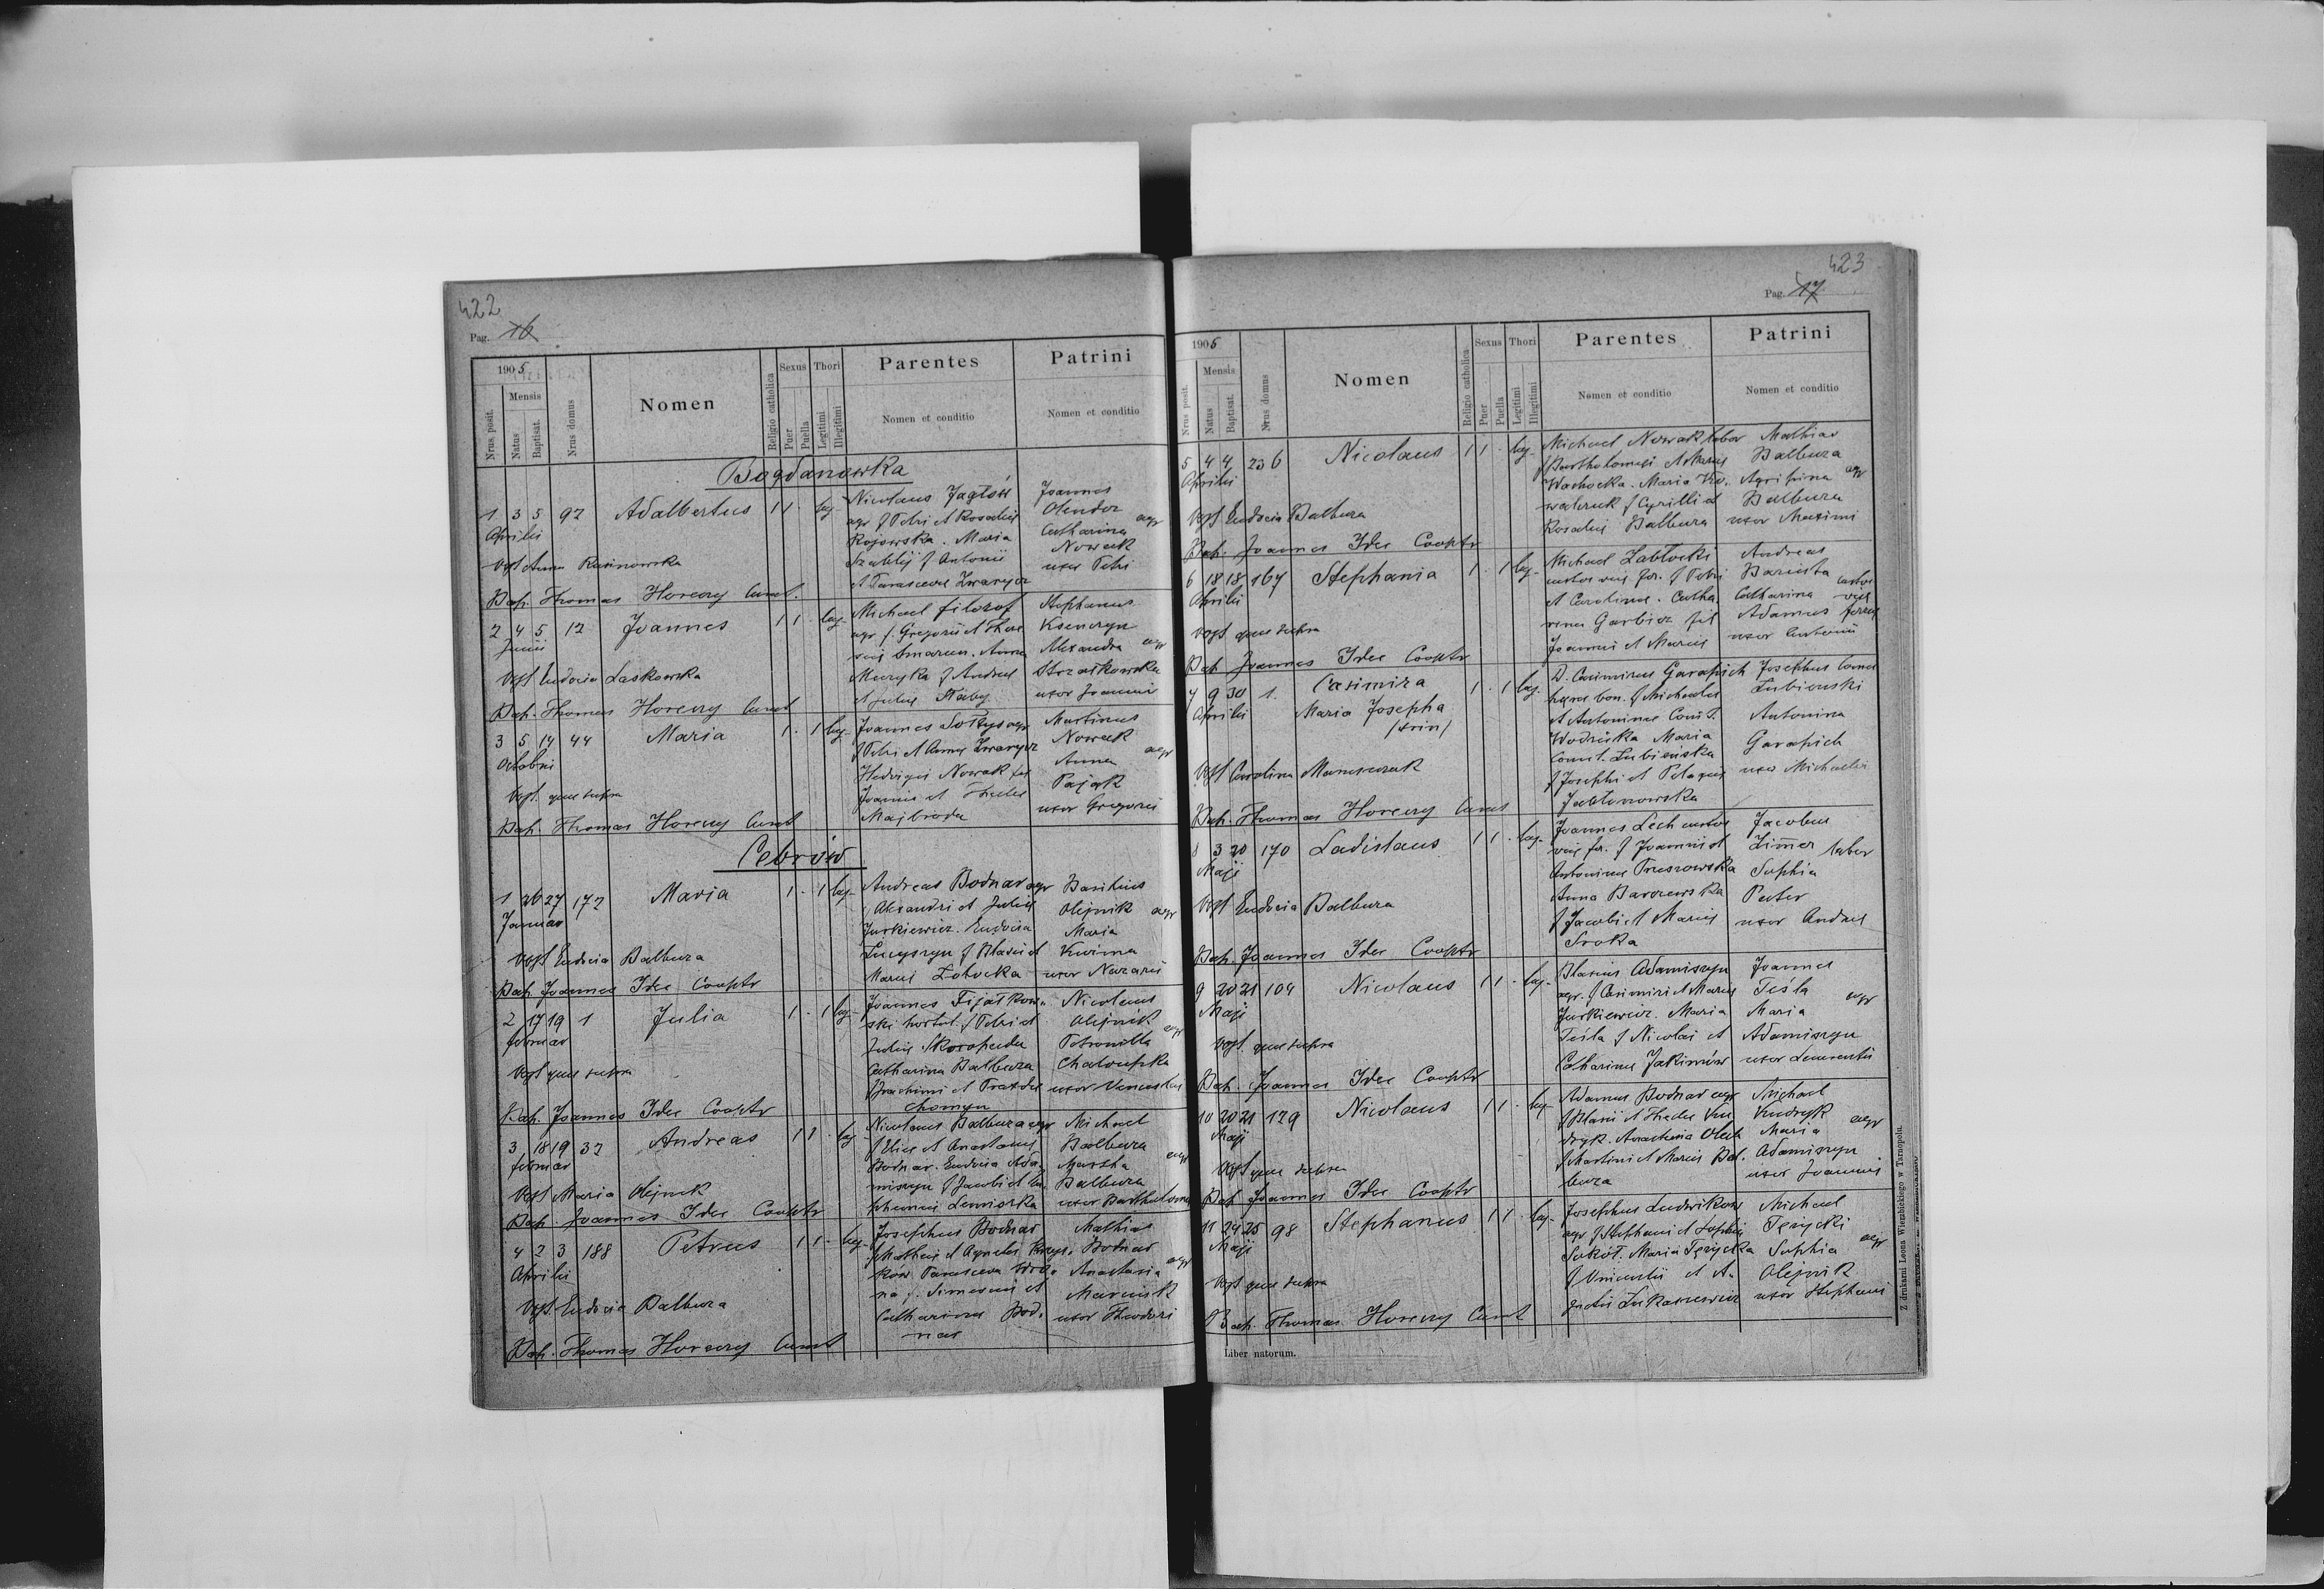 422
Pag. 16
1905
Nrus. posit.
Mensis
Natus
Baptisat.
Nrus domus
Nomen
Religio catholica
Sexus
Puer
Puella
Thori
Legitimi
Illegitimi
Parentes
Nomen et conditio
Patrini
Nomen et conditio
Bogdanowka
1 3 5 92 Adalbertus 1 1 · leg.
Aprilis
Nicolaus Jagłów
agr f Petri et Rosaliej
Rojowska. Maria
Szablij f Antonii
et Parascevae Zwarycz
Joannes
Olender
Catharina agr
Nowak
uxor Petri
Vgst Anna Rusinowska
Bap. Thomas Horeczy Curat.
2 4 5 12 Joannes 1 1 · leg.
Junii
Michael filozof
agr f. Gregorii et Thec
Anna
Muzyka f Andreae
et Juliae Słaby
Stephanus
Alexandra agr
uxor Joannis
Vgst Eudocia Laskowska
Bap. Thomas Horeczy Curat
3 5 14 44 Maria 1 · 1 leg.
Octobris
Joannes Sołtys agr
f Petri et Annae Zwarycz
Hedvigis Nowak fil
Joannis et Theclae
Majbroda
Martinus
Nowak
Anna agr
Pająk
uxor Gregorii
Vgst. quae supra
Bap. Thomas Horeczy Curat
Cebrów
1 26 27 172 Maria 1 · 1 leg.
Januar
Andreas Bodnar agr
f Alexandri et Juliae
Jurkiewicz. Eudocia
f Blasii et
Mariae Zotocka
Basilius
Olejnik agr
Maria
uxor Nazarii
Vgst Eudocia Balbuza
Bap. Joannes Idec Cooptr
2 17 19 1 Julia 1 · 1 leg.
februar
Joannes Fijałkow-
ski hortul. f Petri et
Juliae Skoropada
Catharina Balbuza
f Joachimi et Praxedae
Chomyn
Nicolaus
Olejnik agr
Petronilla
Chałupka
uxor Venceslai
Vgst quae supra
Bap. Joannes Idec Cooptr
3 18 19 32 Andreas 1 1 · leg
februar
Nicolaus Balbuza agr
f Eliae et Anastasiae
Bodnar. Eudocia Ada-
miszyn f Jacobi et Eu-
phemiae
Michael
Balbuza agr
Martha
Balbuza
uxor Bartholomei
Vgst Maria Olejnik
Bap. Joannes Idec Cooptr
4 2 3 188 Petrus 1 1 · leg.
Aprilis
Josephus Bodnar
f Mathiae et Agnetis
ków. Parasceva
na f. Simeonis et
Catharinae Bod-
nar
Mathias
Bodnar agr
Anastasia
uxor Theodori
Vgst Eudocia Balbuza
Bap. Thomas Horeczy Curat
423
Pag. 17
1905
Nrus posit.
Mensis
Natus
Baptisat.
Nrus domus
Nomen
Religio catholica
Sexus
Puer
Puella
Thori
Legitimi
Illegitimi
Parentes
Nomen et conditio
Patrini
Nomen et conditio
5 4 4 236 Nicolaus 1 1 · leg.
Aprilis
Michael Nowak labor
f Bartholomaei et Mariae
Wachocka. Maria Ko-
walczuk f Cyrilli et
Rosaliae Balbuza
Mathias
Balbuza
Agripina agr
Balbuza
uxor Maximi
Vgst Eudocia Balbuza
Bap. Joannes Idec Cooptr
6 18 18 167 Stephania 1 · 1 leg.
Aprilis
Michael Zabłocki
custos viae fer. f Petri
et Carolinae. Catha-
rina Garbicz fil
Joannis et Mariae
Andreas
custos
Catharina viae
Adamus ferreae
uxor Antonii
Vgst quae supra
Bap. Joannes Idec Cooptr
7 9 30 1. Casimira 1 · 1 leg.
Aprilis Maria Josepha
/trin/
D. Casimirus Garapich
haeres bon. f Michaelis
et Antoninae Comit.
Wodzicka Maria
Comit. Łubieńska
f Josephi et Pelagiae
Jabłonowska
Josephus Comes
Łubieński
Antonina
Garapich
uxor Michaelis
Vgst Carolina
Bap. Thomas Horeczy Curat
8 3 20 170 Ladislaus 1 1 · leg.
Maji
Joannes Lech custos
viae fer. f Joannis et
Antoninae
Anna Barozewska
f Jacobi et Mariae
Sroka
Jacobus
Zim̄er labor
Sophia
Puter
uxor Andreae
Vgst Eudocia Balbuza
Bap. Joannes Idec Cooptr
9 20 21 104 Nicolaus 1 1 · leg.
Maji
Blasius Adamiszyn
agr. f Casimiri et Mariae
Jurkiewicz. Maria
Teśla f Nicolai et
Catharinae Jakimów
Joannes
Teśla agr
Maria
Adamiszyn
uxor Laurentii
Vgst quae supra
Bap. Joannes Idec Cooptr
10 20 21 129 Nicolaus 1 1 · leg
Maji
Adamus Bodnar agr
f Blasii et Theclae Ku-
dryk. Anastasia
f Martini et Mariae Bal-
buza
Michael
Kudryk agr
Maria
Adamiszyn
uxor Joannis
Vgst quae supra
Bap Joannes Idec Cooptr
11 24 25 98 Stephanus 1 1 · leg.
Maji
Josephus Ludwikow
agr f Stephani et Sophiae
Sokół. Maria Tęzycka
f Vincentii et A-
gatae Łukasiewicz
Michael
Tęzycki
Sophia agr
Olejnik
uxor Stephani
Vgst quae supra
Bap. Thomas Horeczy Curat
Liber natorum.
Z drukarni Leona Wierzbickiego w Tarnopolu.